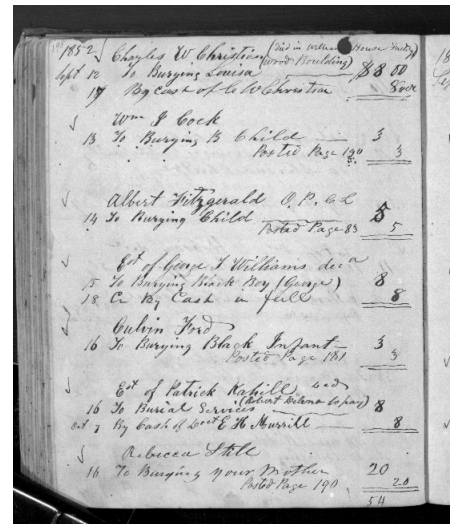 191
1852 Charles W Christian (died in House
wood Boulding)
Sept 12 To Burying Louisa $8 00
17 By Cash of C W Christian 8 00
Wm J Cock
13 To Burying B Child 3
Posted Page 190 3
Albert Fitzgerald O. P.
14 To Burying Child 5
Posted Page 83 5
Est of George T Williams dec d
15 To Burying Black Boy (George) 8
18 Cr By Cash in full 8
Calvin Ford
16 To Burying Black Infant 3
Posted Page 181 3
Est of Patrick Kahill
(Robert to pay)
16 To Burial Services 8
Oct 7 By Cash of Doct E H Murrill 8
Rebecca Still
16 To Burying your Mother 20
Posted Page 190 20
54